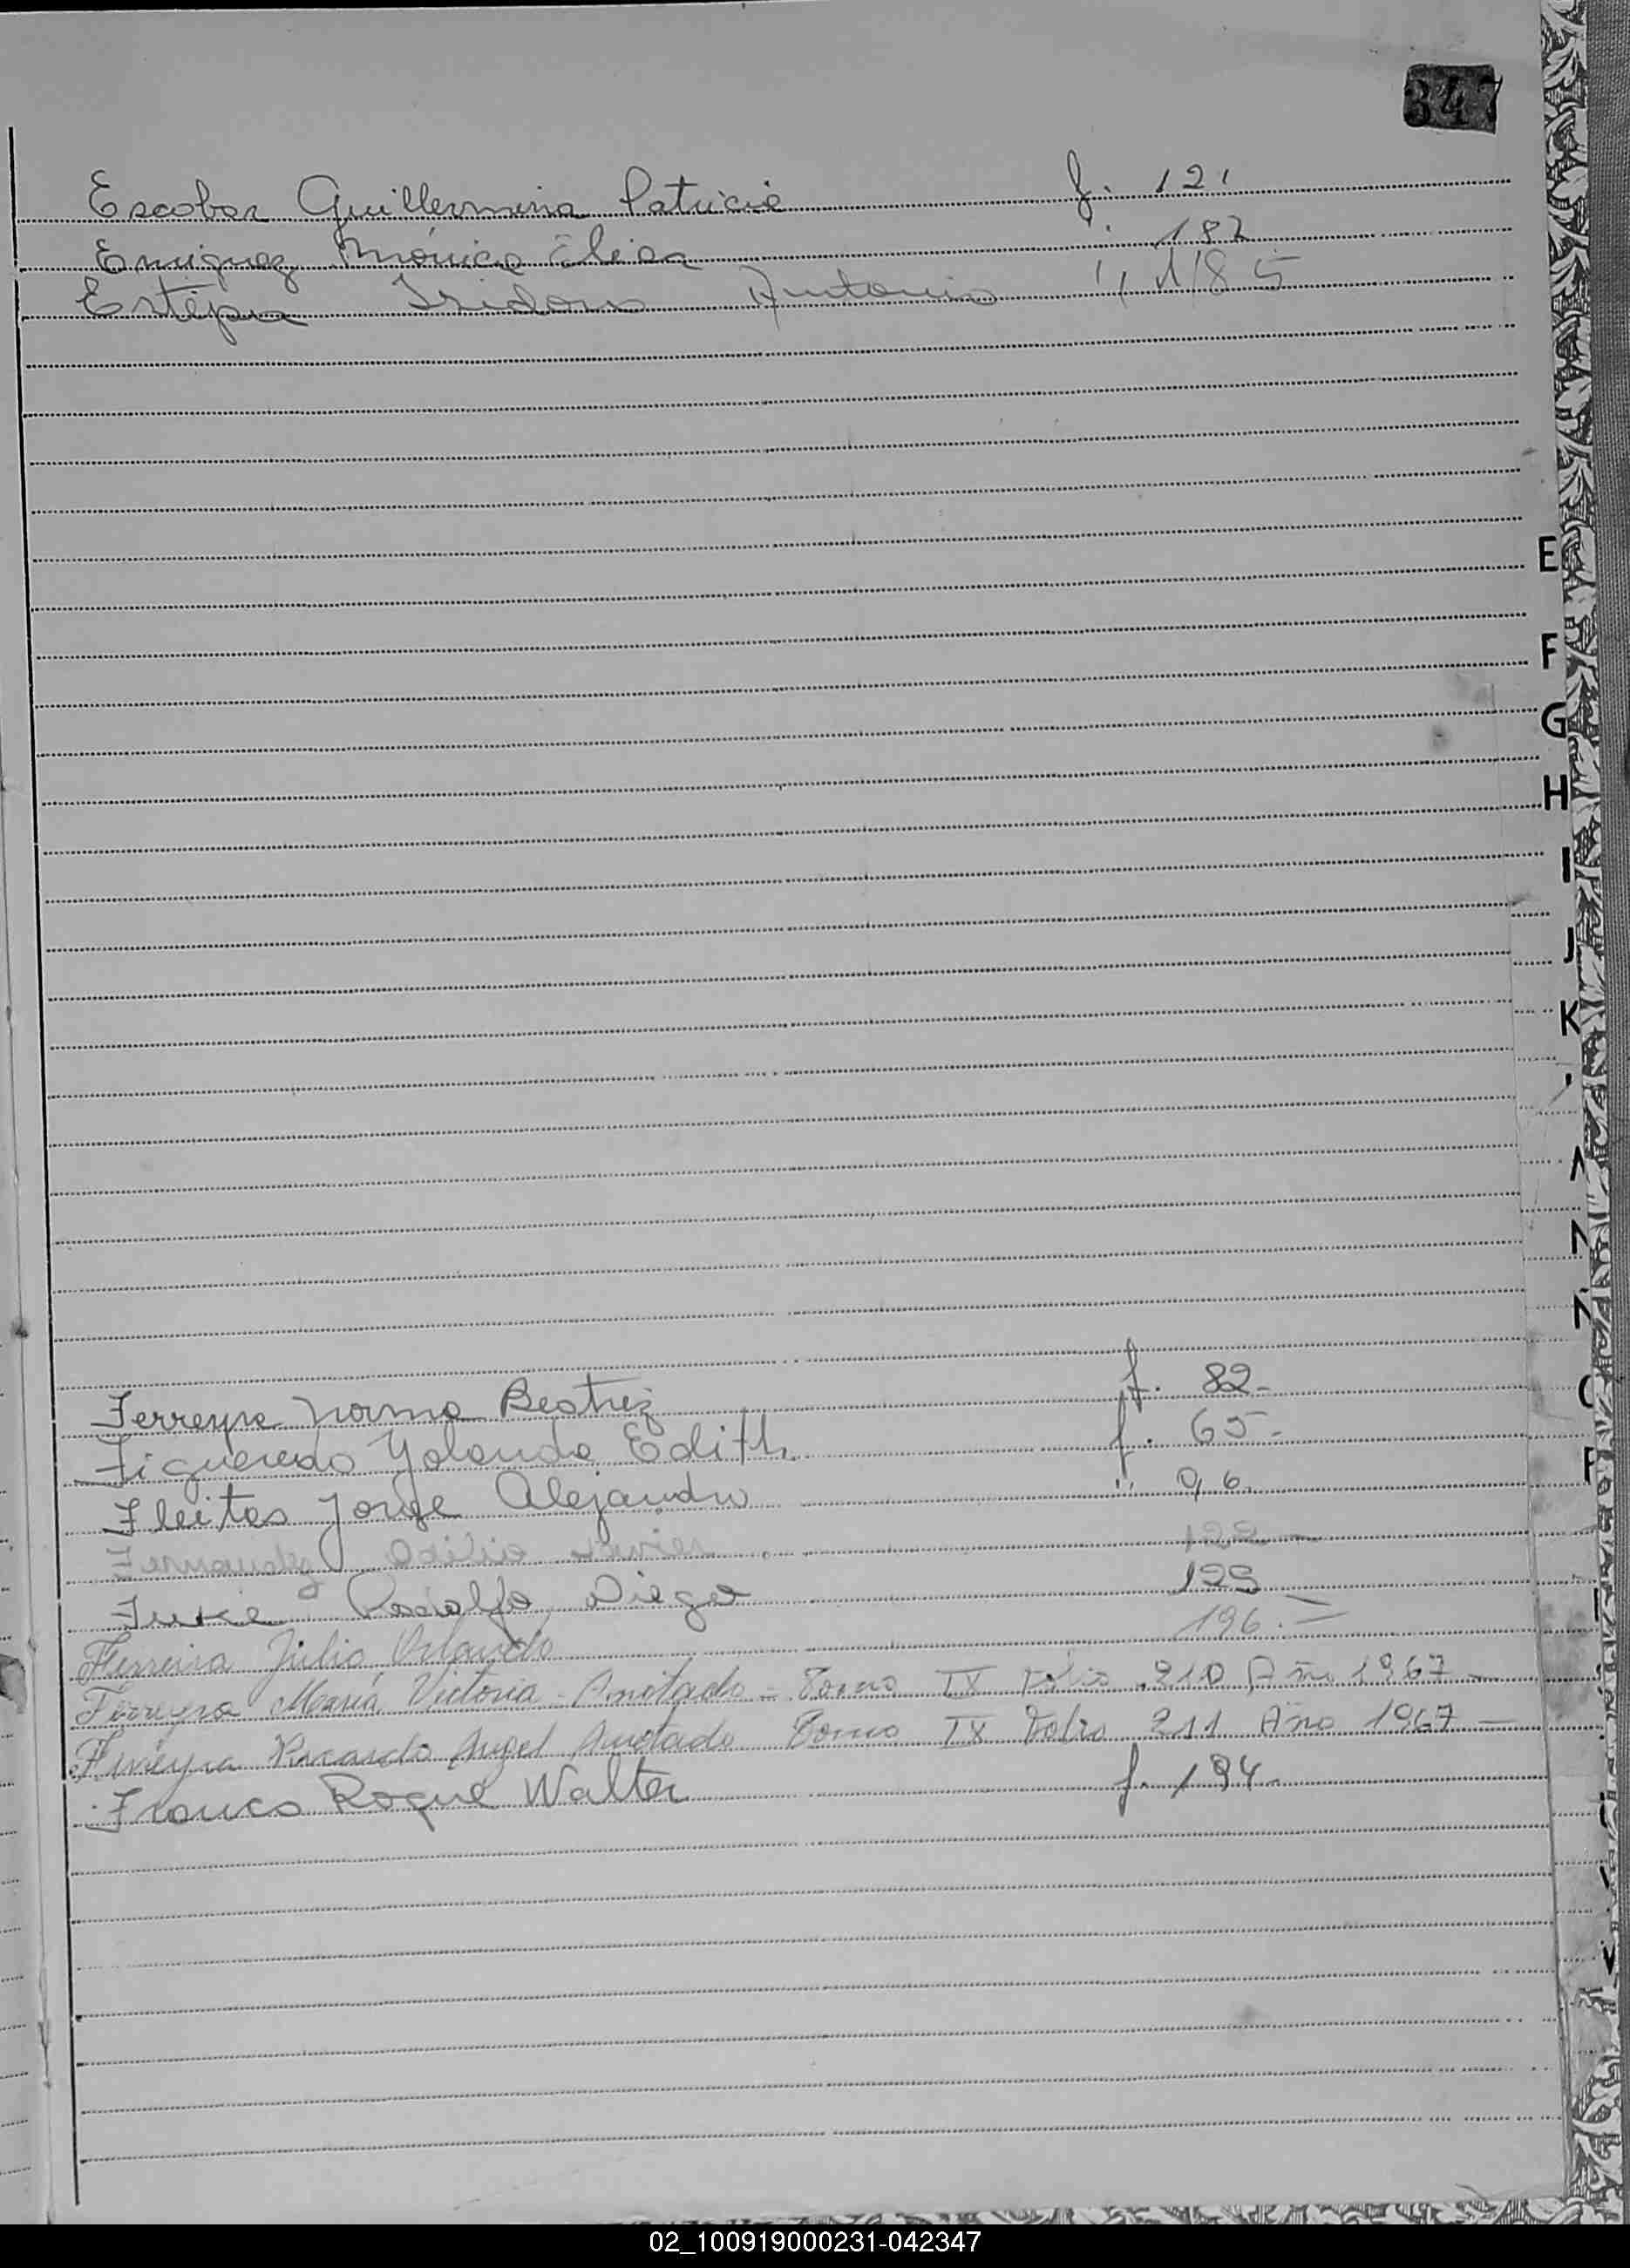 347
Escobar Guillermina Patricia f. 121
Enriquez Mónica Elisa " 182
Estepa Isidoro Antonio " 185
E
F
G
H
I
J
K
N
Ferreyra Norma Beatriz f. 82-
Figueredo Yolanda Edith f. 65-
Fleitas Jorge Alejandro " 96.
Fernandez Javier
Rodolfo Diego
Ferreira Julio Orlando 196.=
Ferreyra María Victoria - Anotado - Tomo IX Folio 210 Año 1967 -
Ricardo Angel Anotado Tomo IX Folio 211 Año 1967 -
Franco Roque Walter f. 194-
02_100919000231-042347